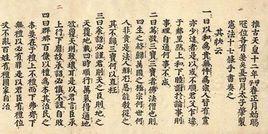 推古天皇十二年甲子春正月始賜
冠位各有差夏四月太子肇製
憲法十七條
其狀云
一曰以和為貴無忤為宗人皆有黨
亦少達者是以或不順君父乍違
于鄰里然上和下睦諧於論事則
事理自通何事不成
二曰篤敬三寶三寶者佛法僧也則
四生之終歸萬國之極宗何世何
人非貴是法人鮮尤惡能教從之
其不歸三寶何以直枉
三曰承詔必謹君則天之臣則地之
天覆地載四時順行萬氣得通地
欲覆天則致壞耳是以君言臣承
上行下靡故承詔必慎不謹自敗
四曰群卿百寮以禮為本其治民之
本要在乎禮上不禮而下非齊下
無禮以必有罪是以君臣有禮位
次不亂百姓有禮國家自治